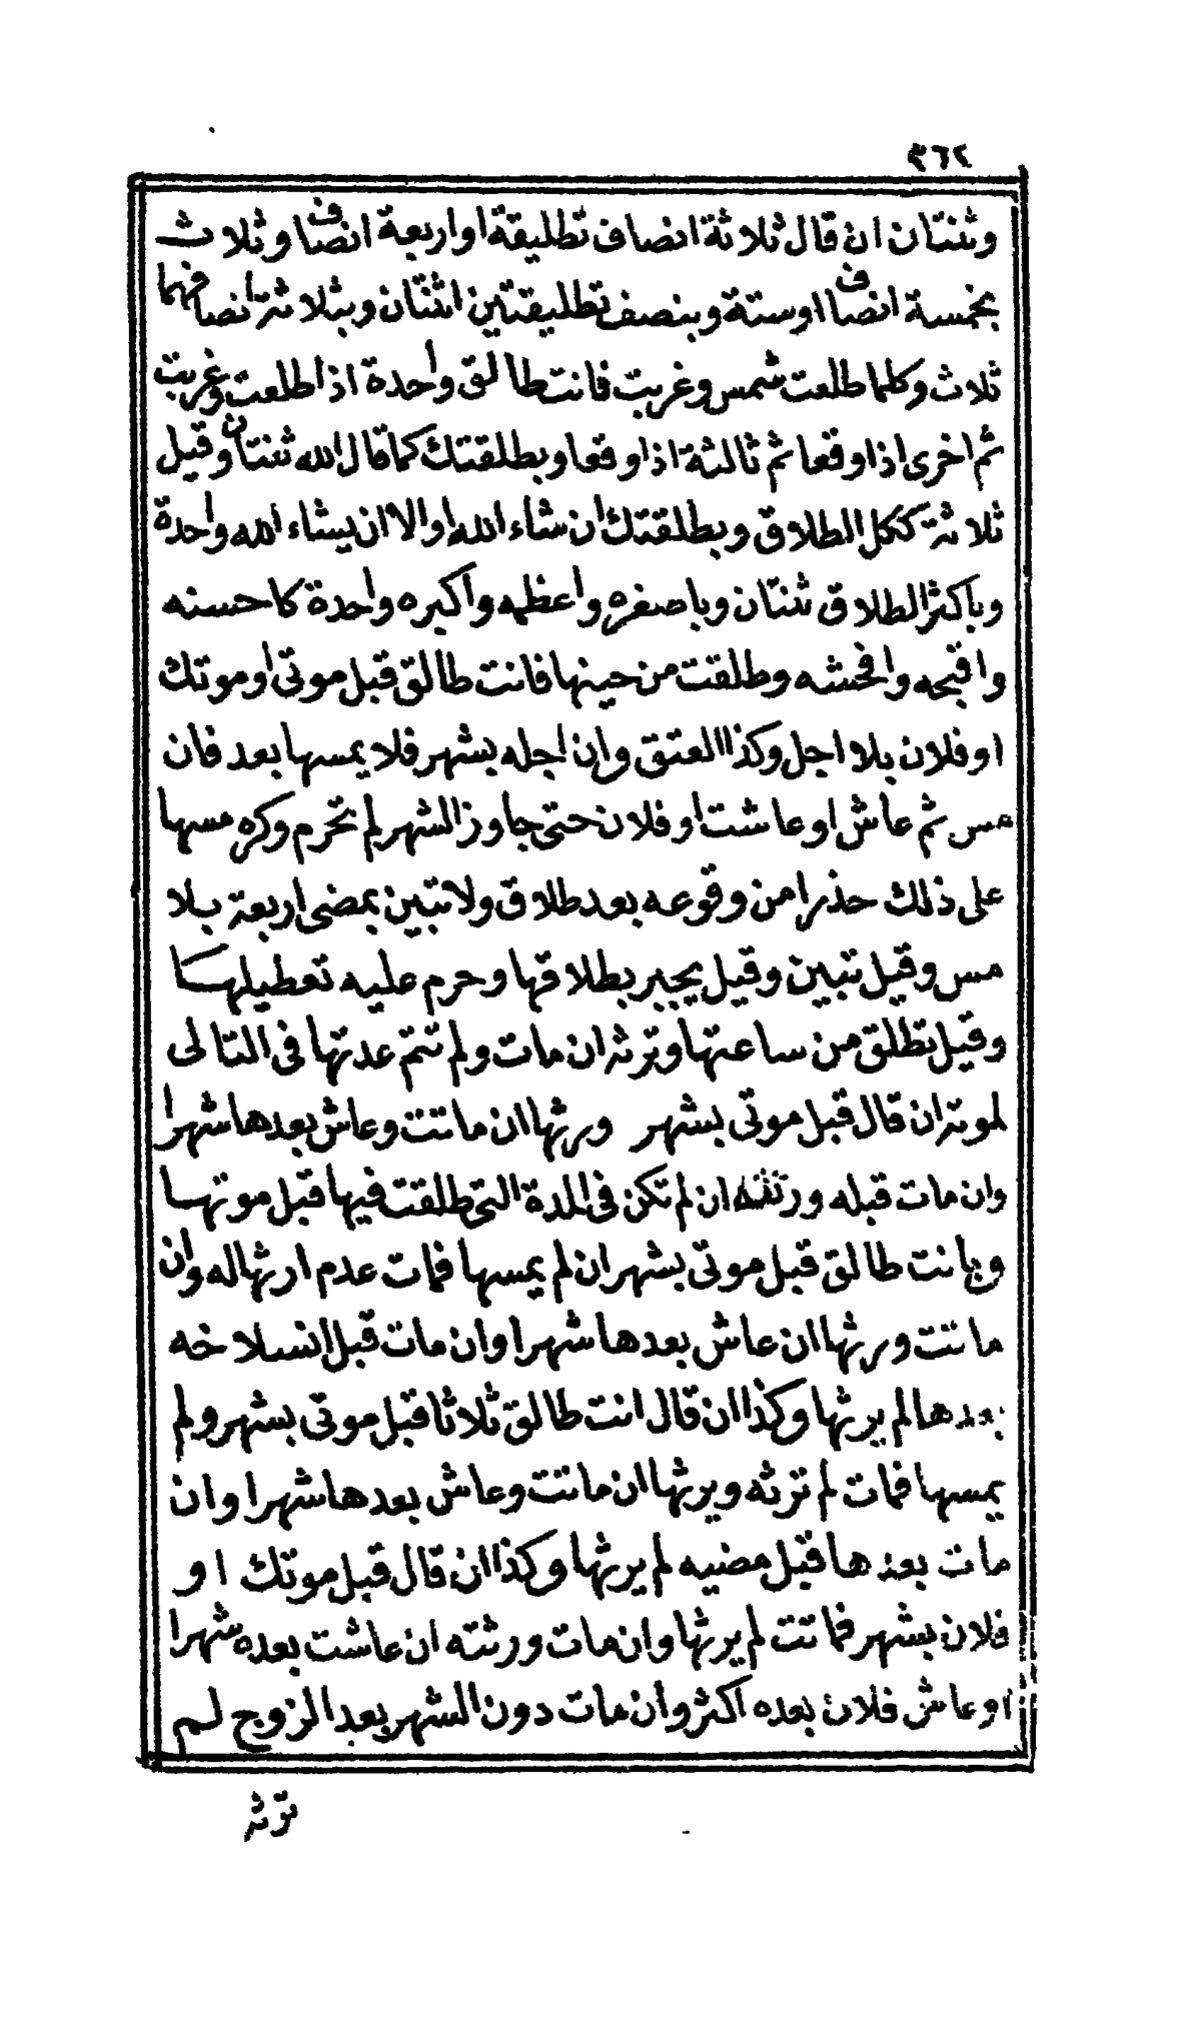 ٣٦٢
وثنتان ان قال ثلاثة انصاف تطليقة او اربعة انصاف وثلاث
بخمسة انصاف او ستة وبنصف تطليقتين اثنتان وبثلاثة انصافهما
ثلاث وكلما طلعت شمس وغربت فانت طالق واحدة اذا طلعت وغربت
ثم اخرى اذا وقعا ثم ثالثة اذا وقعا وبطلقتك كما قال الله ثنتان وقيل
ثلاثة ككل الطلاق وبطلقتك ان شاء الله او الا ان يشاء الله واحدة
وباكثر الطلاق ثنتان وباصغره واعظمه واكبره واحدة كاحسنه
واقبحه وافحشه وطلقت من حينها فانت طالق قبل موتى او موتك
او فلان بلا اجل وكذا العتق وان اجله بشهر فلا يمسها بعد فان
مس ثم عاش او عاشت او فلان حتى جاوز الشهر لم تحرم وكره مسها
على ذلك حذرا من وقوعه بعد طلاق ولا تبين بمضى اربعة بلا
مس وقيل تبين وقيل يجبر بطلاقها وحرم عليه تعطيلها
وقيل تطلق من ساعتها وترثه ان مات ولم تتم عدتها فى التالى
لموته ان قال قبل موتى بشهر ورثها ان ماتت وعاش بعدها شهرا
وان مات قبله ورثته ان لم تكن فى المدة التى طلقت فيها قبل موتها
وبانت طالق قبل موتى بشهر ان لم يمسها فمات عدم ارثها له وان
ماتت ورثها ان عاش بعدها شهرا وان مات قبل انسلاخه
بعدها لم يرثها وكذا ان قال انت طالق ثلاثا قبل موتى بشهر ولم
يمسها فمات لم ترثه ويرثها ان ماتت وعاش بعدها شهرا وان
مات بعدها قبل مضيه لم يرثها وكذا ان قال قبل موتك او
فلان بشهر فماتت لم يرثها وان مات ورثته ان عاشت بعده شهرا
او عاش فلان بعده اكثر وان مات دون الشهر بعد الزوج لم
ترثه